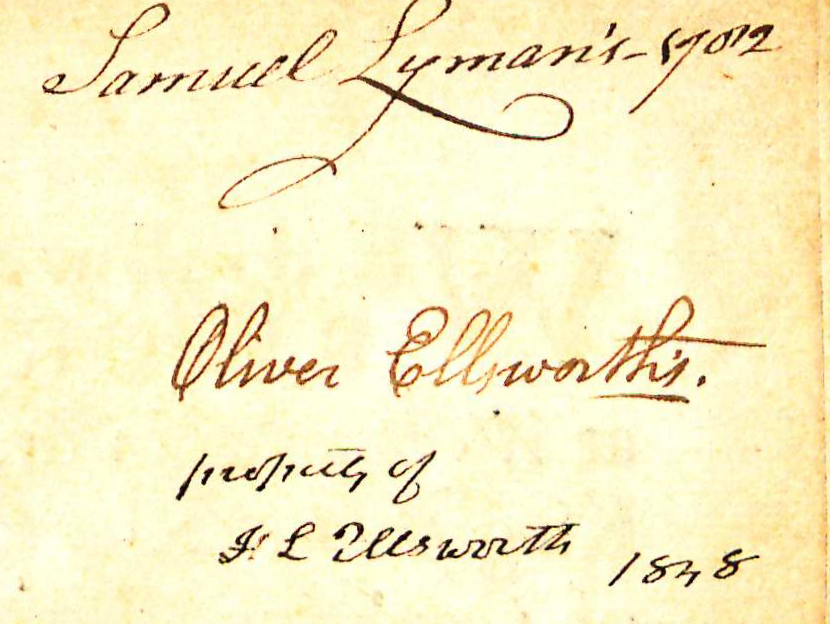 Samuel Lyman's
Oliver Ellsworth's.
property of
H L Ellsworth 1848